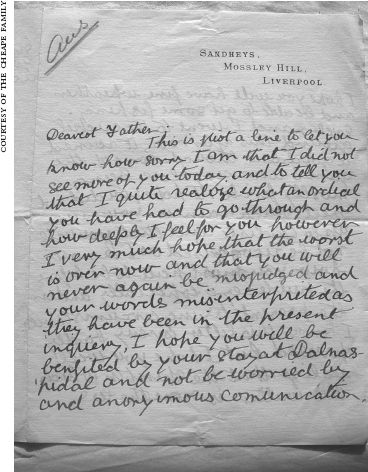 COURTESY OF THE CHEAPE FAMILY
Ans
SANDHEYS,
MOSSLEY HILL,
LIVERPOOL
Dearest Father
This is just a line to let you
know how sorry I am that I did not
see more of you today, and to tell you
that I quite realize what an ordeal
you have had to go through and
how deeply I feel for you however
I very much hope that the worst
is over now and that you will
never again be misjudged and
your words misinterpreted as
they have been in the present
inquiery, I hope you will be
benefited by your stay at Dalnas-
pidal and not be worried by
and anonymous comunication.